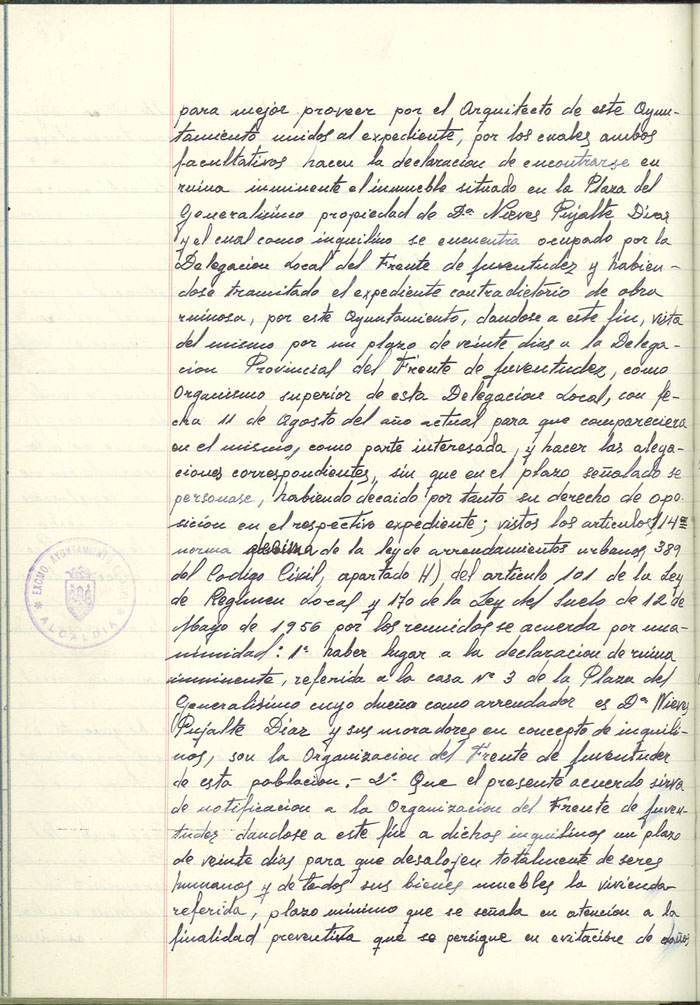 para mejor proveer por el Arquitecto de este Ayun-
tamiento unidos al expediente, por los cuales ambos
facultativos hacen la declaracion de encontrarse en
ruina inminente el inmueble situado en la Plaza del
Generalisimo propiedad de Dª Nieves Pujalte Diaz
y el cual como inquilino se encuentra ocupado por la
Delegacion Local del Frente de Juventudez y habien-
dose tramitado el expediente contradictorio de obra
ruinosa, por este Ayuntamiento, dandose a este fin, vista
del mismo por un plazo de veinte dias a la Delega-
cion Provincial del Frente de Juventudez, como
Organismo superior de esta Delegacion Local, con fe-
cha 11 de Agosto del año actual para que compareciera
en el mismo, como parte interesada, y hacer las alega-
ciones correspondientes, sin que en el plazo señalado se
personase, habiendo decaido por tanto su derecho de opo-
sición en el respectivo expediente; vistos los articulos 114
norma decima de la ley de arrendamientos urbanos, 389
del Codigo Civil, apartado H), del articulo 101 de la Ley
de Regimen Local y 170 de la Ley del Suelo de 12 de
Mayo de 1956 por los reunidos se acuerda por una-
nimidad: 1º haber lugar a la declaracion de ruina
inminente, referida a la casa nº 3 de la Plaza del
Generalisimo cuyo dueña como arrendador es Dª Nieves
Pujalte Diaz y sus moradores en concepto de inquili-
nos, son la Organizacion del Frente de Juventudez
de esta poblacion.- 2º Que el presente acuerdo sirva
de notificacion a la Organizacion del Frente de Juven-
tudez dandose a este fin a dichos inquilinos un plazo
de veinte dias para que desalojen totalmente de seres
humanos y de todos sus bienes muebles la vivienda
referida, plazo minimo que se señala en atencion a la
finalidad preventiva que se persigue en evitacion de daños
EXCMO. AYUNTAMIENTO
ALCALDIA